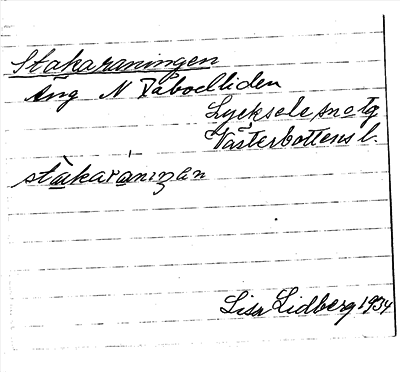 Stakaraningen
Äng N Tåbodliden
Lycksele sn o tg
Västerbottens l.
stakaranıŋən
Lisa Lidberg 1934